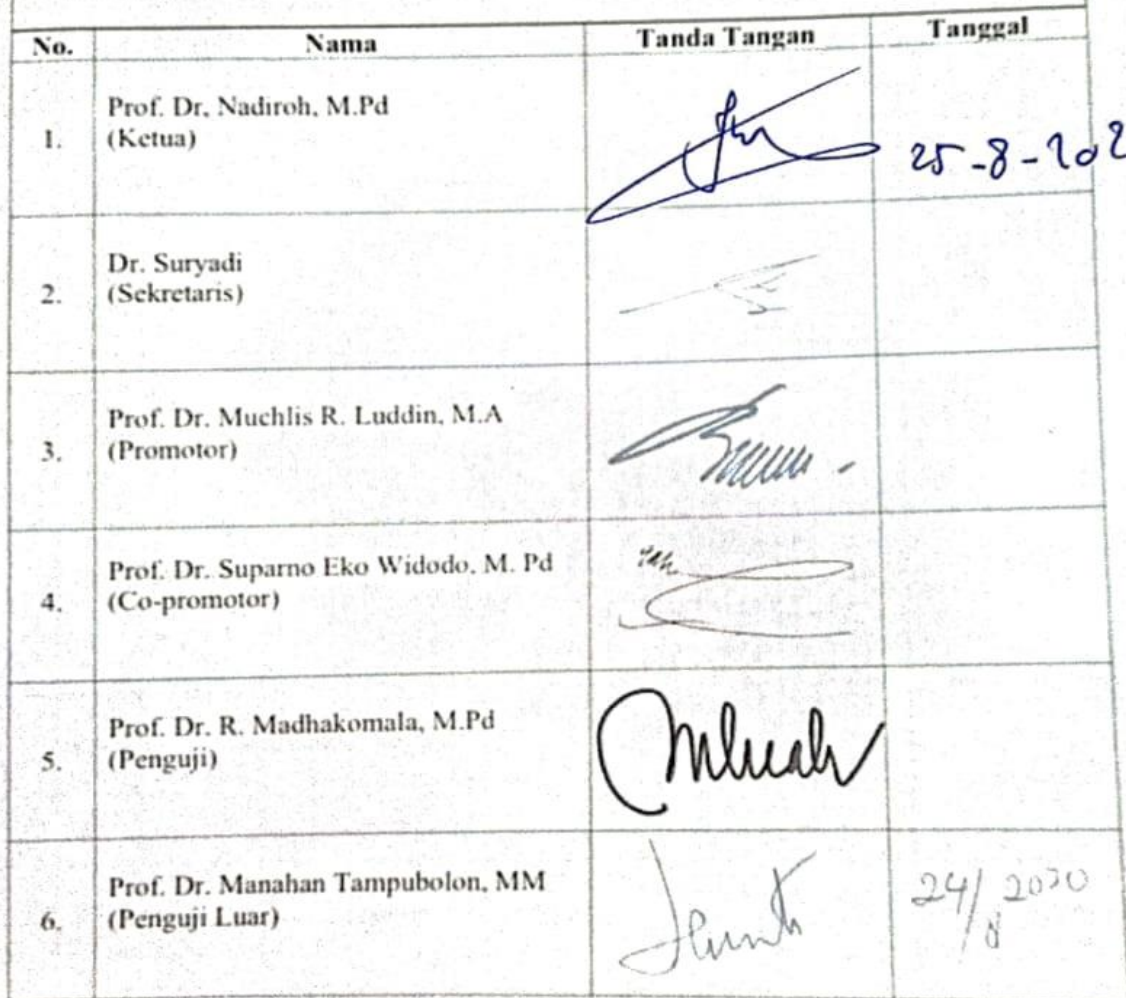 No. Nama Tanda Tangan Tanggal
1. Prof. Dr, Nadiroh, M.Pd
(Ketua)
25-8-202
2. Dr. Suryadi
(Sekretaris)
3. Prof. Dr. Muchlis R. Luddin, M.A
(Promotor)
4. Prof. Dr. Suparno Eko Widodo, M. Pd
(Co-promotor)
5. Prof. Dr. R. Madhakomala, M.Pd
(Penguji)
6. Prof. Dr. Manahan Tampubolon, MM
(Penguji Luar)
24/8 2020